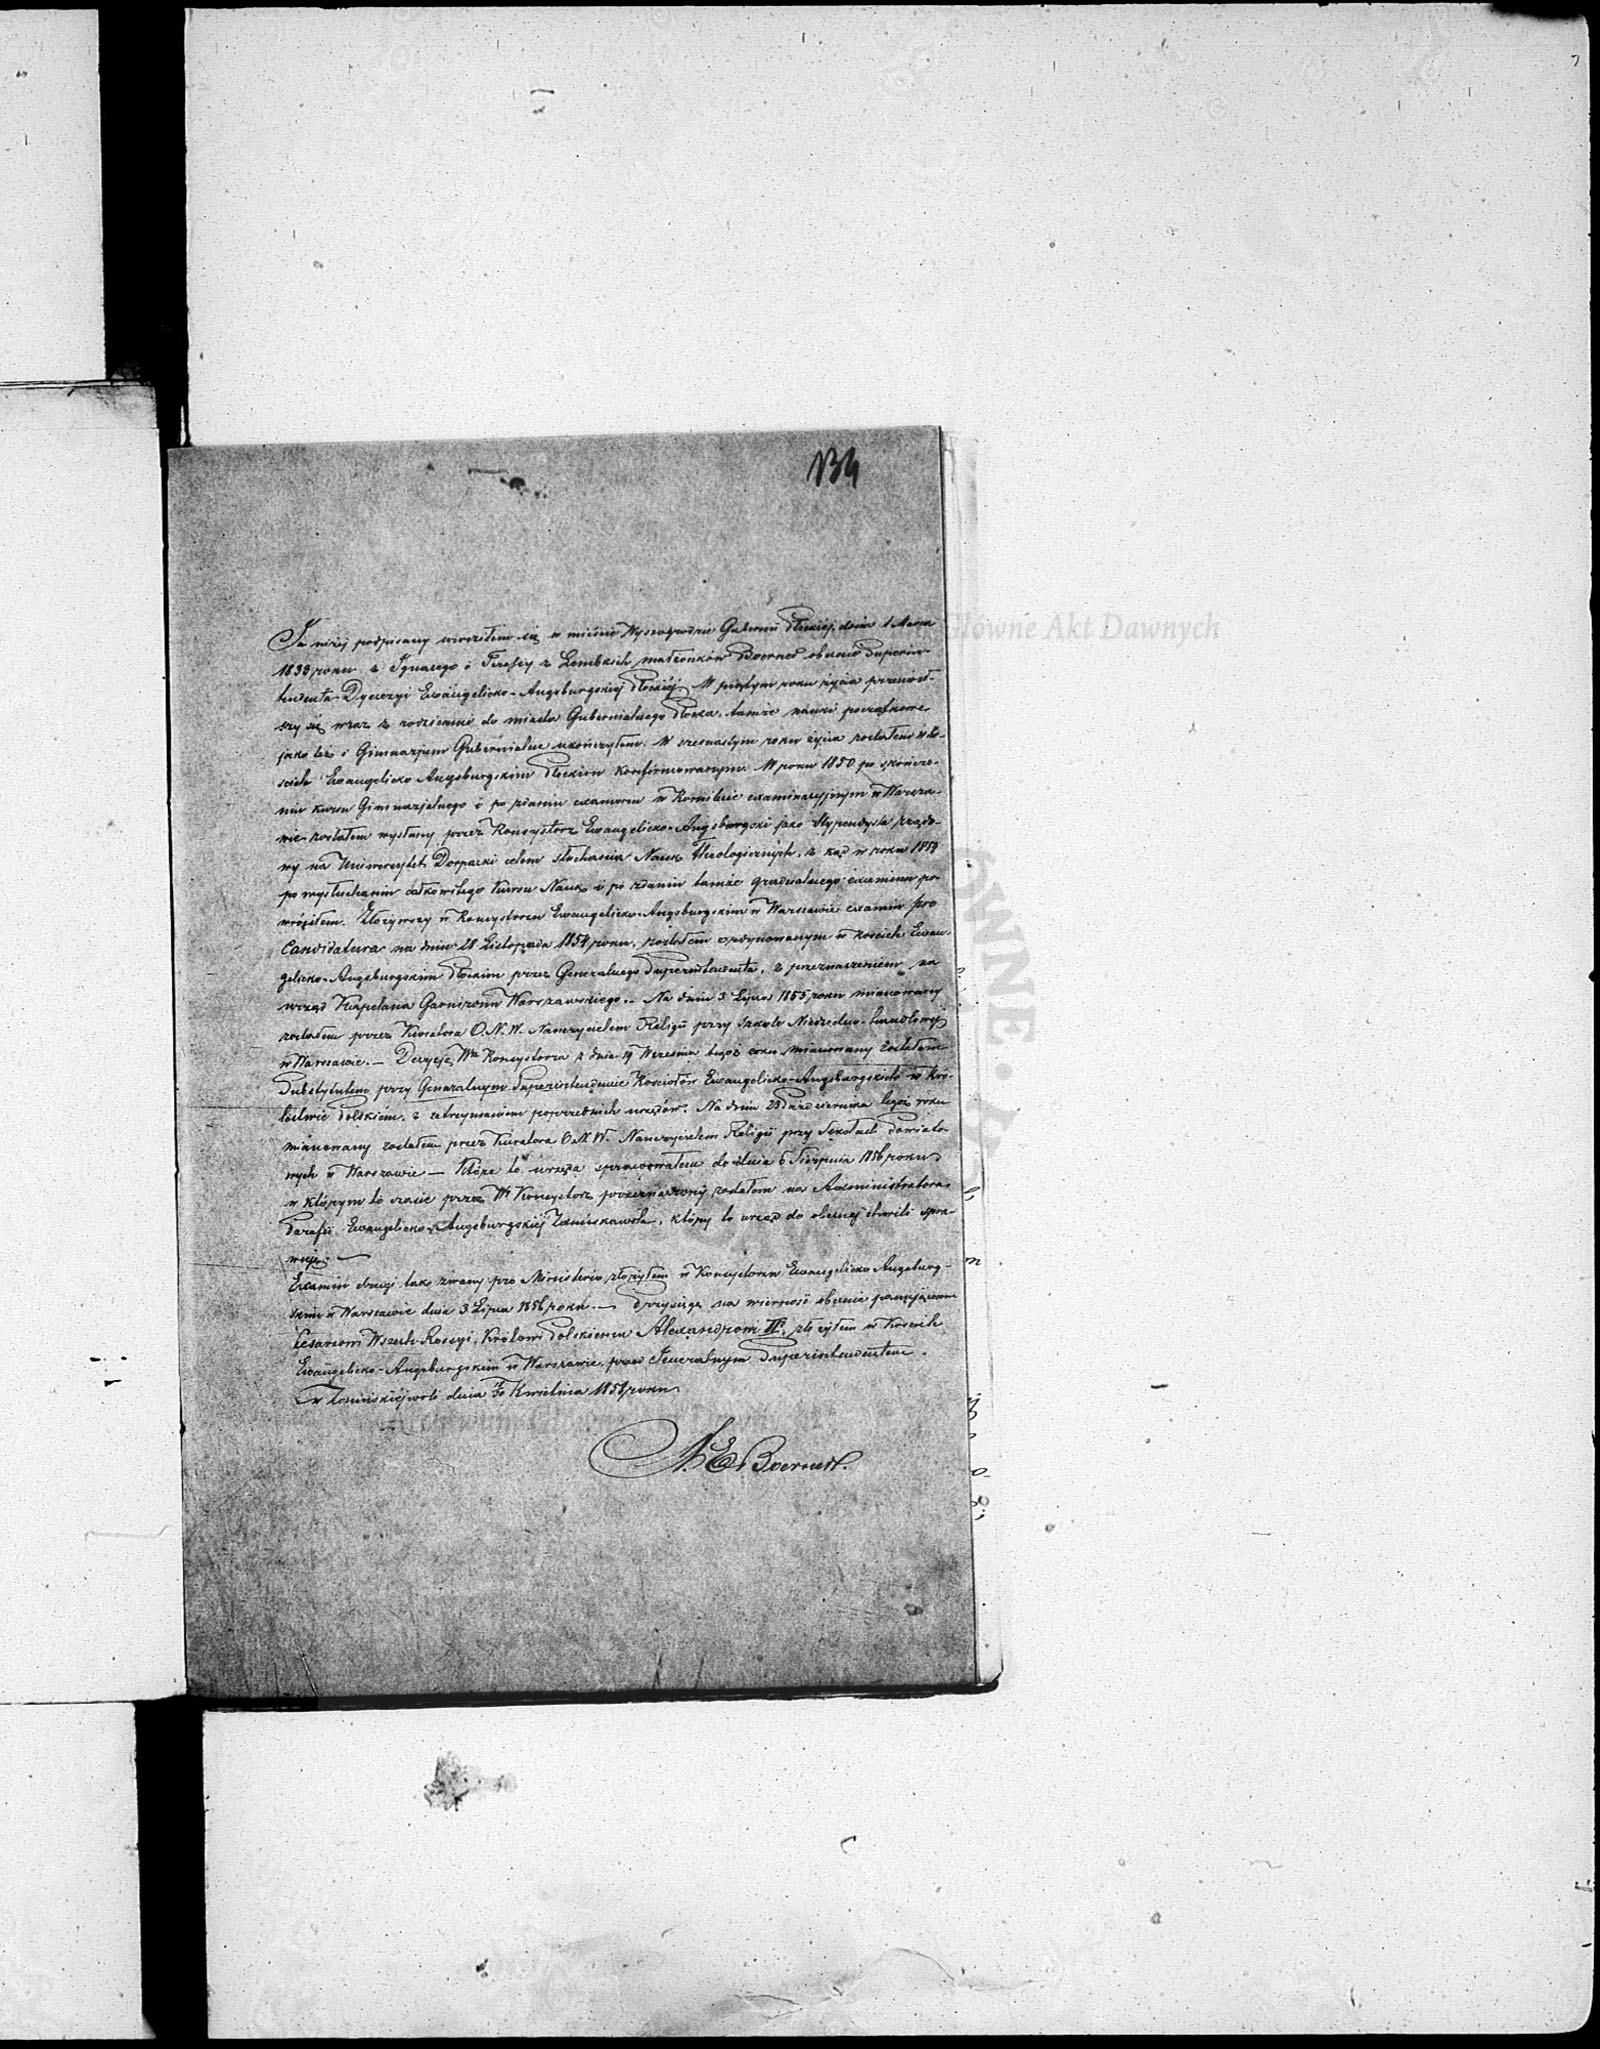 134
Ja niżej podpisany urodziłem się w mieście Wyszogrodzie Gubernii Płockiej, dnia 1 Marca
1833 roku z Ignacego i Teresy z Lembkich małżonków Boerner obecnie Superin-
tendenta Dyecezyi Ewangelicko-Augsburgskiej Płockiej. W piątym roku życia przeniosł-
szy się wraz z rodzicami do miasta Gubernialnego Płocka, tamże nauki początkowe
jako też i Gimnazjum Gubernialne ukończyłem. W szesnastym roku życia zostałem w Ko-
sciele Ewangelicko Augsburgskim Płockim Konfirmowanym. W roku 1850 po skończe-
niu kursu Gimnazjalnego i po zdaniu examenu w Komitecie examinacyjnym w Warsza-
wie zostałem wysłany przez Konsystorz Ewangelicko-Augsburgski jako Stypendysta rządo-
wy na Uniwersytet Dorpacki celem słuchania Nauk Theologicznych, z kąd w roku 1854
po wysłuchaniu całkowitego Kursu Nauk i po zdaniu tamże gradualnego examinu po-
wróciłem. Złożywszy w Konsystorzu Ewangelicko-Augsburgskim w Warszawie examin pro
Candidatura na dniu 28 Listopada 1854 roku, zostałem ordynowanym w Kosciele Ewan-
gelicko-Augsburgskim Płockim przez Generalnego Superintendenta, z przeznaczeniem na
urząd Kapelana Garnizonu Warszawskiego. – Na dniu 3 Lipca 1855 roku mianowany
zostałem przez Kuratora O.N.W. Nauczycielem Religii przy Szkole Niedzielno-handlowej
w Warszawie. – Decyzją Konsystorza z dnia 19 Września tegoż roku mianowany zostałem
Substytutem przy Generalnym Superintendencie Kosciołów Ewangelicko-Augsburgskich w Kró-
lestwie Polskiém, z zatrzymaniem poprzednich urzędów. Na dniu 23 Października tegoż roku
mianowany zostałem przez Kuratora O.N.W. Nauczycielem Religii przy Szkołach Powiato-
wych w Warszawie – Które to urzęda sprawowałem do dnia 6 Sierpnia 1856 roku
w którym to czasie przez Konsystorz przeznaczony zostałem na Administratora
Parafii Ewangelicko-Augsburgskiej, który to urząd do obecnej chwili spra-
wuję. –
Examin drugi tak zwany pro Ministerio złożyłem w Konsystorzu Ewangelicko Augsburg-
skim w Warszawie dnia 3 Lipca 1856 roku. – Przysięgę na wierność obecnie panującemu
Cesarzowi Wszech-Rossyi, Królowi Polskiemu Alexandrowi II, złożyłem w Kosciele
Ewangelicko-Augsburgskim w Warszawie, przed Generalnym Superintendentem.
dnia Kwietnia roku.
Boerner.
Główne Akt Dawnych